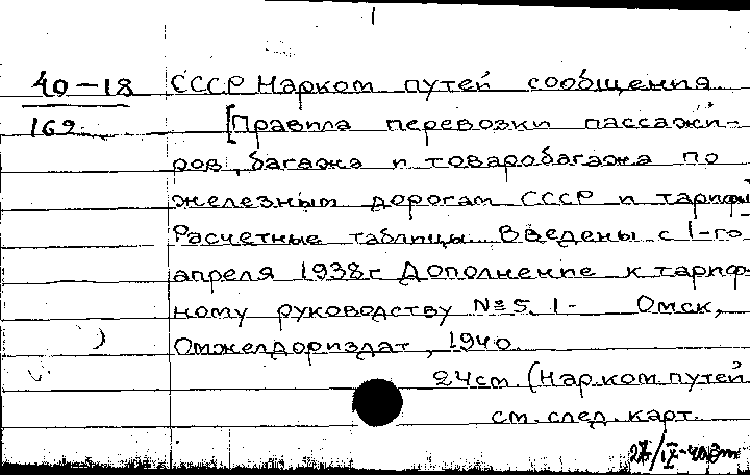 40-18
169
СССР Нарком путей сообщения.
[Правила перевозки пассажи-
ров, багажа и товаробагажа по
железным дорогам СССР и тарифы
Расчетные таблицы. Введены с 1-го
апреля 1938 г Дополнение к тариф-
ному руководству № 5. 1- Омск,
Омжелдориздат, 1940.
24 ст. (Нар.ком.путей
см. след. карт.